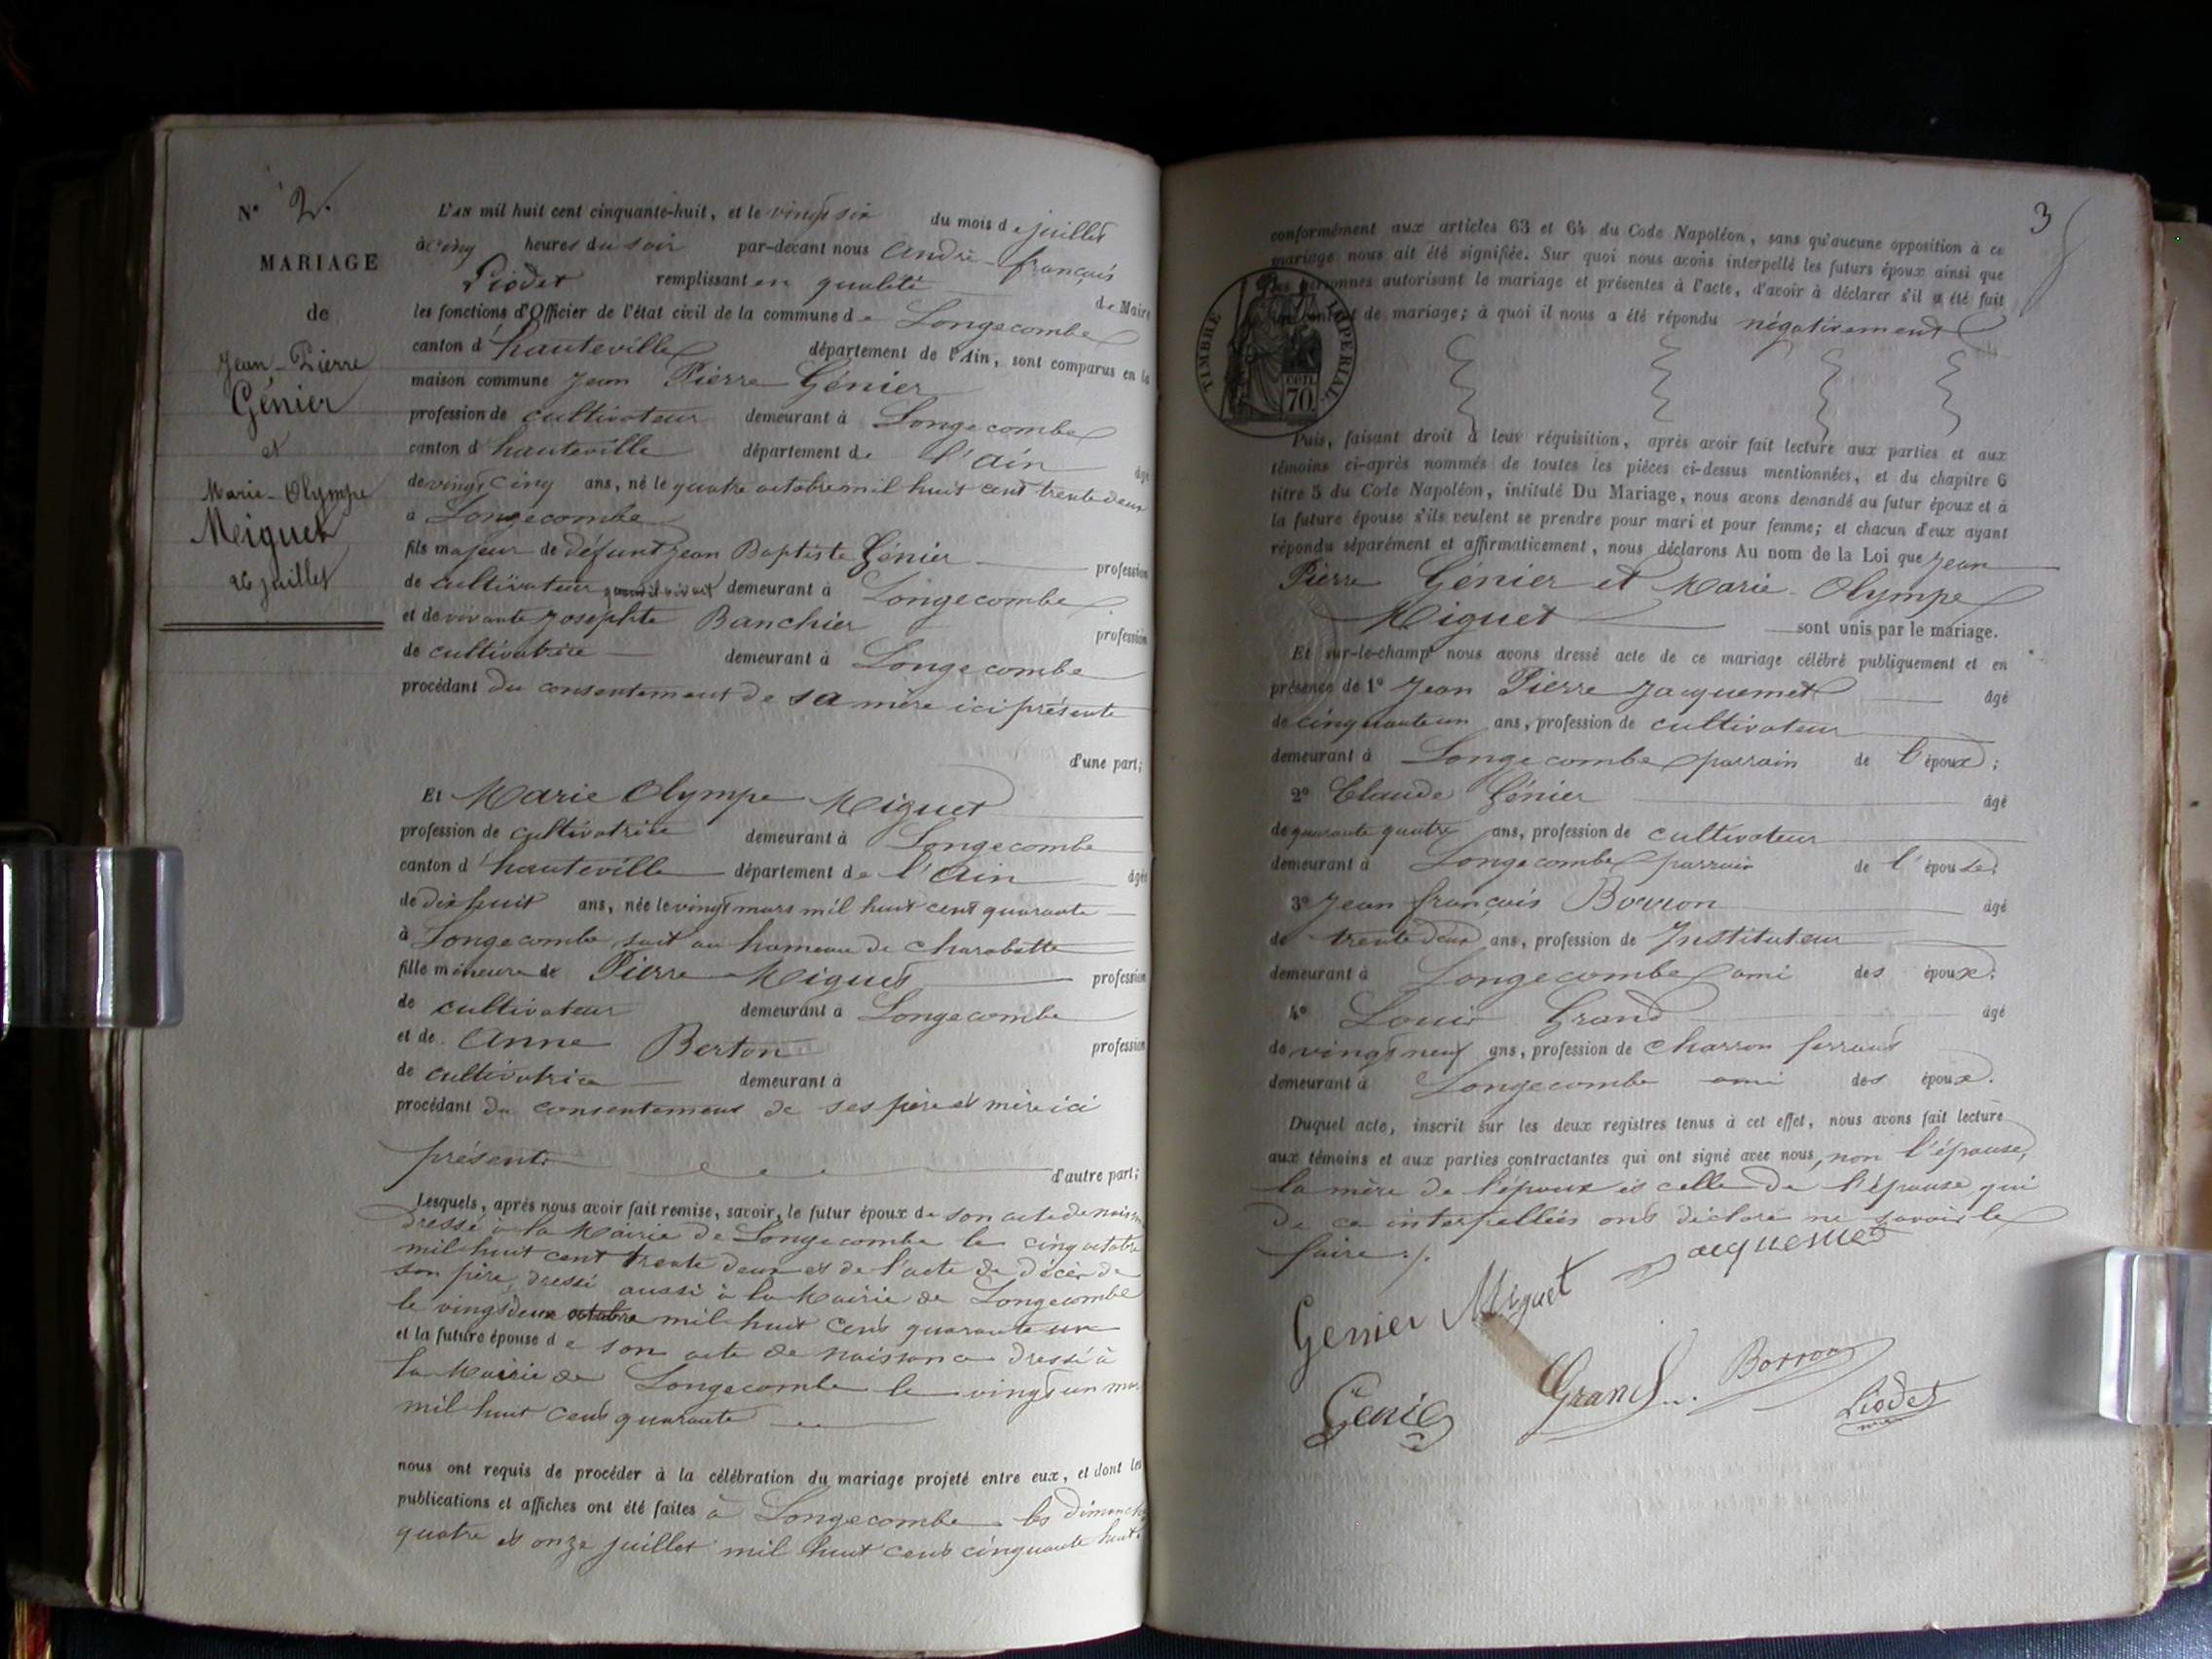 N° 2.
MARIAGE
de
Jean-Pierre
Génier
et
Marie-Olympe
Miguet
26 juillet
L'AN mil huit cent cinquante-huit, et le vingt six du mois de juillet
à cinq heures du soir par-devant nous André-françois
Liodet remplissant en qualité de Maire
les fonctions d'Officier de l'état civil de la commune de Longecombe
canton d'hauteville département de l'Ain, sont comparus en la
maison commune Jean Pierre Génier
profession de cultivateur demeurant à Longecombe
canton d'hauteville département de l'Ain âgé
de vingt cinq ans, né le quatre octobre mil huit cent trente deux
à Longecombe
fils majeur de défunt Jean Baptiste Génier profession
de cultivateur quand il vivait demeurant à Longecombe
et de vivante Josephte Banchier profession
de cultivatrice demeurant à Longecombe
procédant du consentement de sa mère ici présente
d'une part;
Et Marie Olympe Miguet
profession de cultivatrice demeurant à Longecombe
canton d'hauteville département de l'Ain âgée
de dix huit ans, née le vingt mars mil huit cent quarante
à Longecombe, soit au hameau de Charabotte
fille mineure de Pierre Miguet profession
de cultivateur demeurant à Longecombe
et de Anne Berton profession
de cultivatrice demeurant à
procédant du consentement de ses père et mère ici
présents d'autre part;
Lesquels, après nous avoir fait remise, savoir, le futur époux de son acte de naissance
dressé à la Mairie de Longecombe le cinq octobre
mil huit cent trente deux et de l'acte de décès de
son père, dressé aussi à la Mairie de Longecombe
le vingt deux octobre mil huit cent quarante un
et la future épouse de son acte de naissance dressé à
la Mairie de Longecombe le vingt un mars
mil huit cent quarante
nous ont requis de procéder à la célébration du mariage projeté entre eux, et dont les
publications et affiches ont été faites à Longecombe les dimanche
quatre et onze juillet mil huit cent cinquante huit.
3
conformément aux articles 63 et 64 du Code Napoléon, sans qu'aucune opposition à ce
mariage nous ait été signifiée. Sur quoi nous avons interpellé les futurs époux ainsi que
les personnes autorisant le mariage et présentes à l'acte, d'avoir à déclarer s'il a été fait
de mariage; à quoi il nous a été répondu négativement
TIMBRE IMPERIAL
CEN.
70
Puis, faisant droit à leur réquisition, après avoir fait lecture aux parties et aux
témoins ci-après nommés de toutes les pièces ci-dessus mentionnées, et du chapitre 6
titre 5 du Code Napoléon, intitulé Du Mariage, nous avons demandé au futur époux et à
la future épouse s'ils veulent se prendre pour mari et pour femme; et chacun d'eux ayant
répondu séparément et affirmativement, nous déclarons Au nom de la Loi que Jean
Pierre Génier et Marie-Olympe
Miguet sont unis par le mariage.
Et sur-le-champ nous avons dressé acte de ce mariage célébré publiquement et en
présence de 1° Jean Pierre Jacquemet âgé
de cinquante un ans, profession de cultivateur
demeurant à Longecombe parrain de l'époux;
2° Claude Génier âgé
de quarante quatre ans, profession de cultivateur
demeurant à Longecombe parrain de l'épouse;
3° Jean françois Borron âgé
de trente deux ans, profession de Instituteur
demeurant à Longecombe ami des époux;
4° Louis Grand âgé
de vingt neuf ans, profession de charron ferrant
demeurant à Longecombe ami des époux.
Duquel acte, inscrit sur les deux registres tenus à cet effet, nous avons fait lecture
aux témoins et aux parties contractantes qui ont signé avec nous, non l'épouse,
la mère de l'époux et celle de l'épouse qui
de ce interpellées ont déclaré ne savoir le
faire ./.
Jacquemet
Genier Miguet
Genie Grand Borron Liodet